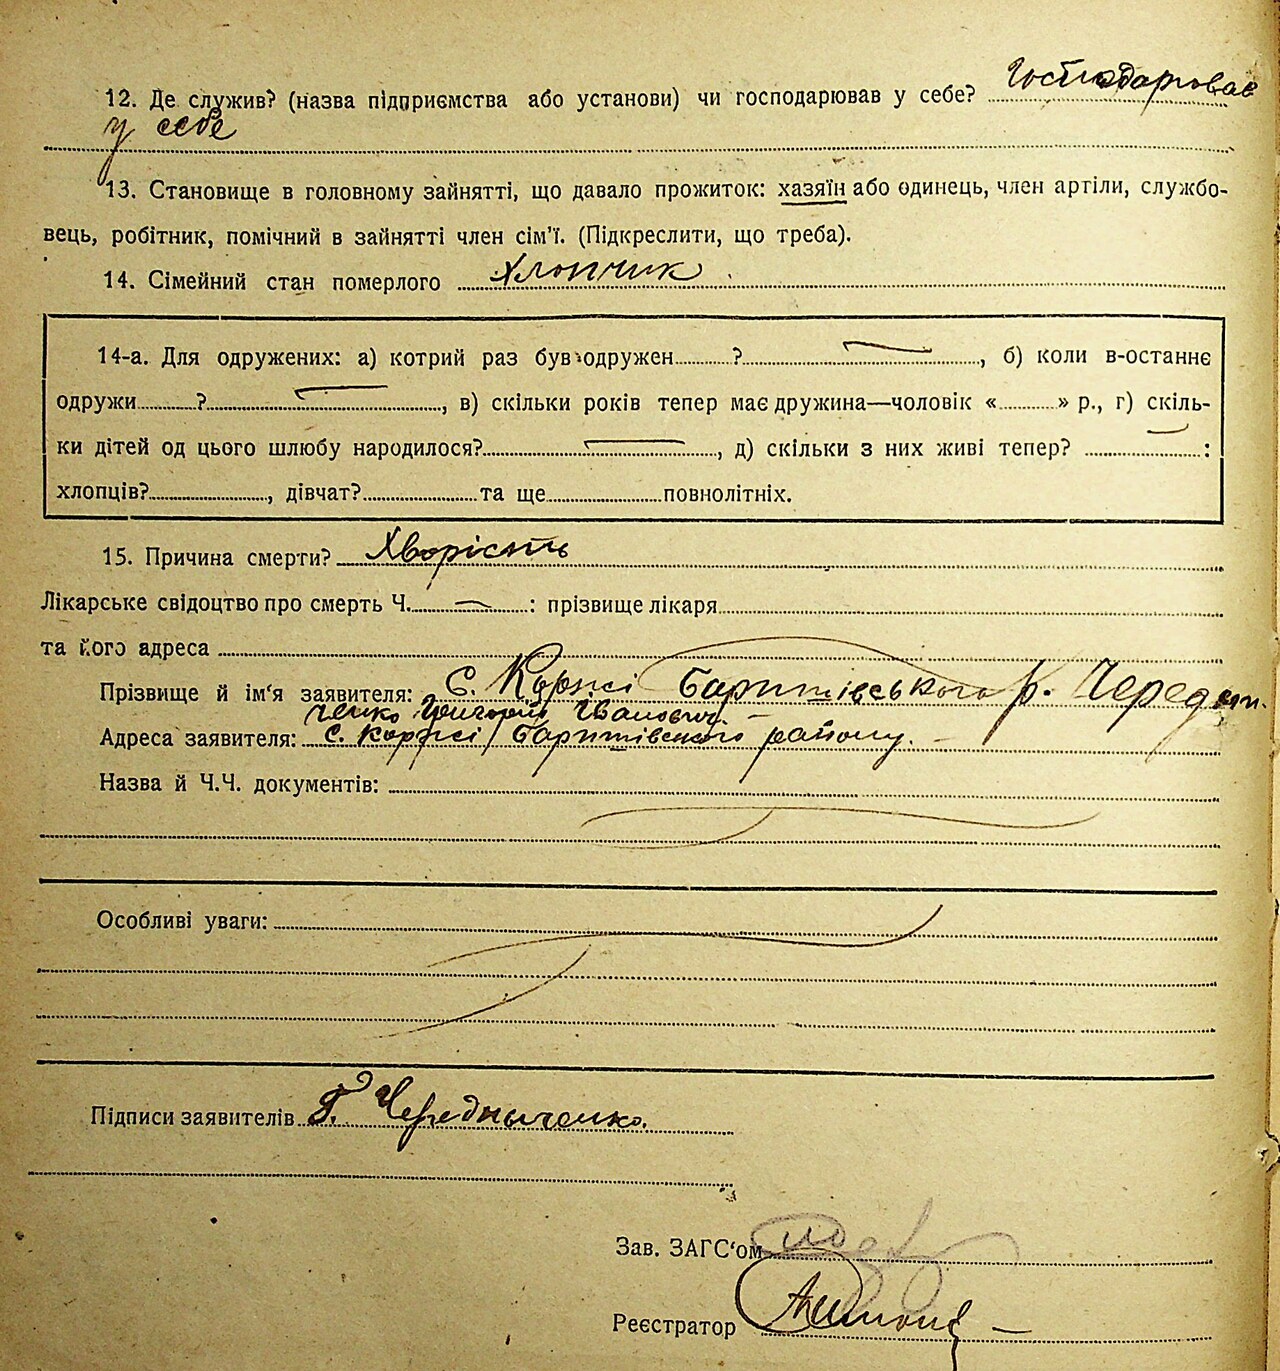 12. Де служив? (назва підприємства або установи) чи господарював у себе? Господарював
у себе
13. Становище в головному зайнятті, що давало прожиток: хазяїн або одинець, член артіли, службо-
вець, робітник, помічний в зайнятті член сім'ї. (Підкреслити, що треба).
14. Сімейний стан померлого Хлопчик
14-а. Для одружених: а) котрий раз був одружен ? , б) коли в-останнє
одружи ? , в) скільки років тепер має дружина—чоловік « » р., г) скіль-
ки дітей од цього шлюбу народилося? , д) скільки з них живі тепер? :
хлопців? , дівчат? та ще повнолітніх.
15. Причина смерти? Хворість
Лікарське свідоцтво про смерть Ч. : прізвище лікаря
та його адреса
Прізвище й ім'я заявителя: С. Коржі Баришівського р. Чередни
ченко Григорій Іванович
Адреса заявителя: с. Коржі Баришівського району.
Назва й Ч.Ч. документів:
Особливі уваги:
Підписи заявителів Г. Чередныченко.
Зав. ЗАГС'ом
Реєстратор